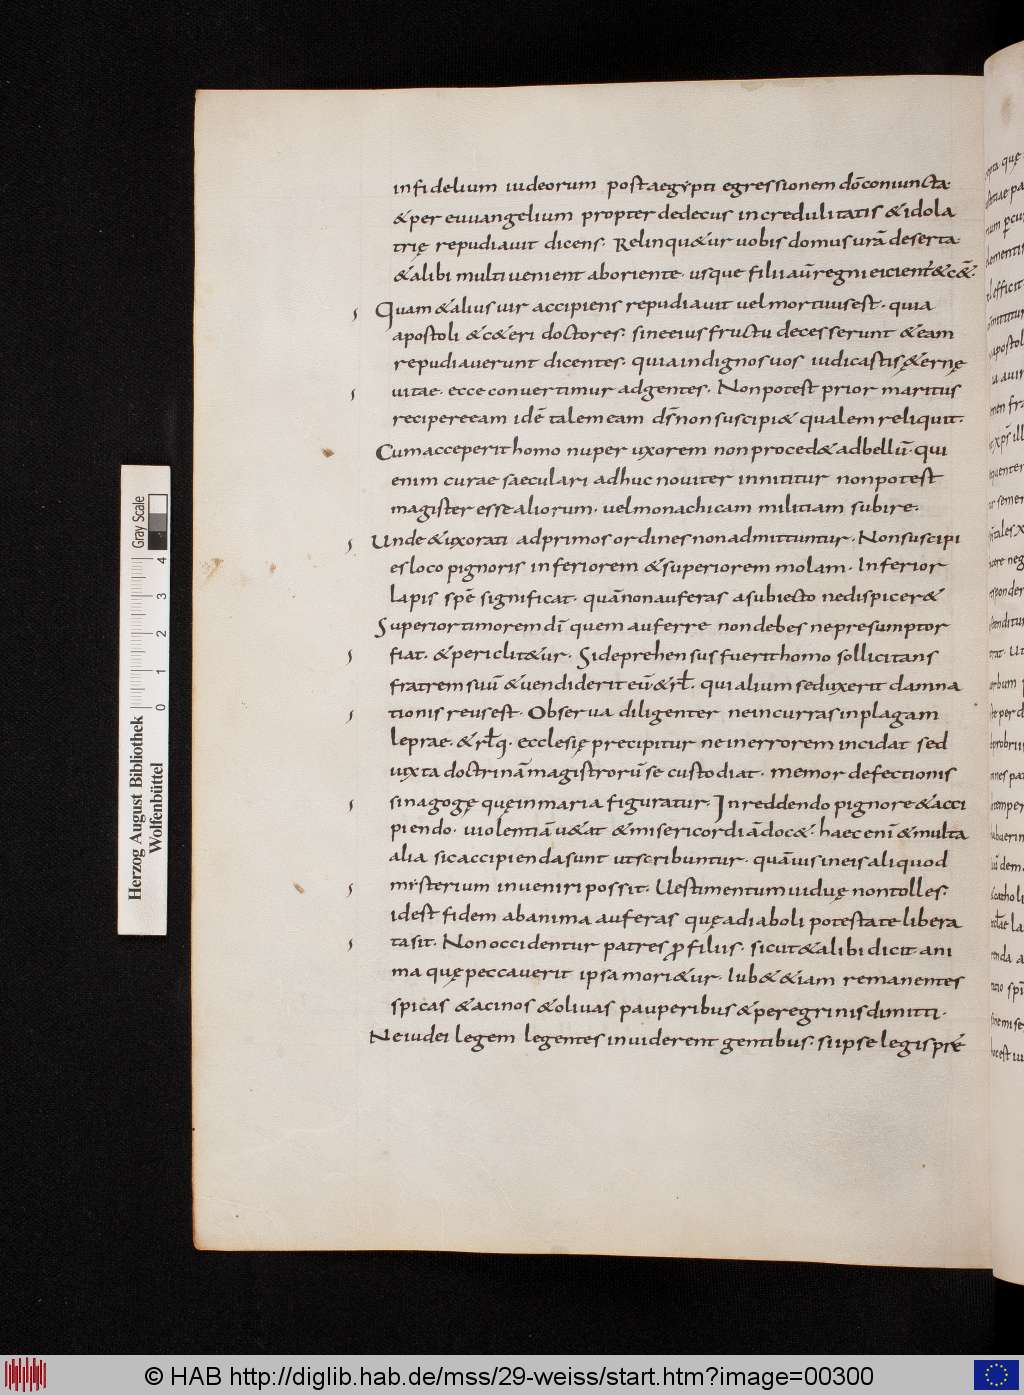 infidelium iudeorum post aegypti egressionem dō coniuncta
& per euuangelium propter dedecus incredulitatis & idola
trię repudiauit dicens. Relinqu&ur uobis domus urā deserta.
& alibi multi uenient ab oriente. usque filii aū regni eicient̄ & c&̄.
Quam & alius uir accipiens repudiauit uel mortuus est. quia
apostoli & c&eri doctores. sine eius fructu decesserunt & eam
repudiauerunt dicentes. quia indignos uos iudicastis ę&ernę
uitae. ecce conuertimur ad gentes. Non potest prior maritus
recipere eam idē talem eam d̄s non suscipi& qualem reliquit.
Cum acceperit homo nuper uxorem non proced& ad bellū. qui
enim curae saeculari adhuc nouiter innititur non potest
magister esse aliorum. uel monachicam militiam subire.
Unde & uxorati ad primos ordines non admittuntur. Non suscipi
es loco pignoris inferiorem & superiorem molam. Inferior
lapis spē significat. quā non auferas a subiecto ne dispicer&
Superior timorem dī quem auferre non debes ne presumptor
fiat. & periclit&ur. Si deprehensus fuerit homo sollicitans
fratrem suū & uendiderit eū & rł. qui alium seduxerit damna
tionis reus est. Obserua diligenter ne incurras in plagam
leprae. & rłq. ecclesię precipitur ne in errorem incidat sed
iuxta doctrinā magistrorū se custodiat. memor defectionis
sinagogę quę in maria figuratur. In reddendo pignore & acci
piendo. uiolentiā u&at & misericordiā doc&. haec enī & multa
alia sic accipienda sunt ut scribuntur. quāuis in eis aliquod
mysterium inueniri possit. Uestimentum uiduę non tolles.
id est fidem ab anima auferas quę a diaboli potestate libera
ta sit. Non occidentur patres ꝓ filiis. sicut & alibi dicit. ani
ma quę peccauerit ipsa mori&ur. Iub& &iam remanentes
spicas & acinos & oliuas pauperibus & peregrinis dimitti.
Ne iudei legem legentes inuiderent gentibus. si ipse legis pr̄e
Herzog August Bibliothek
Wolfenbüttel
Gray Scale
0 1 2 3 4
© HAB http://diglib.hab.de/mss/29-weiss/start.htm?image=00300